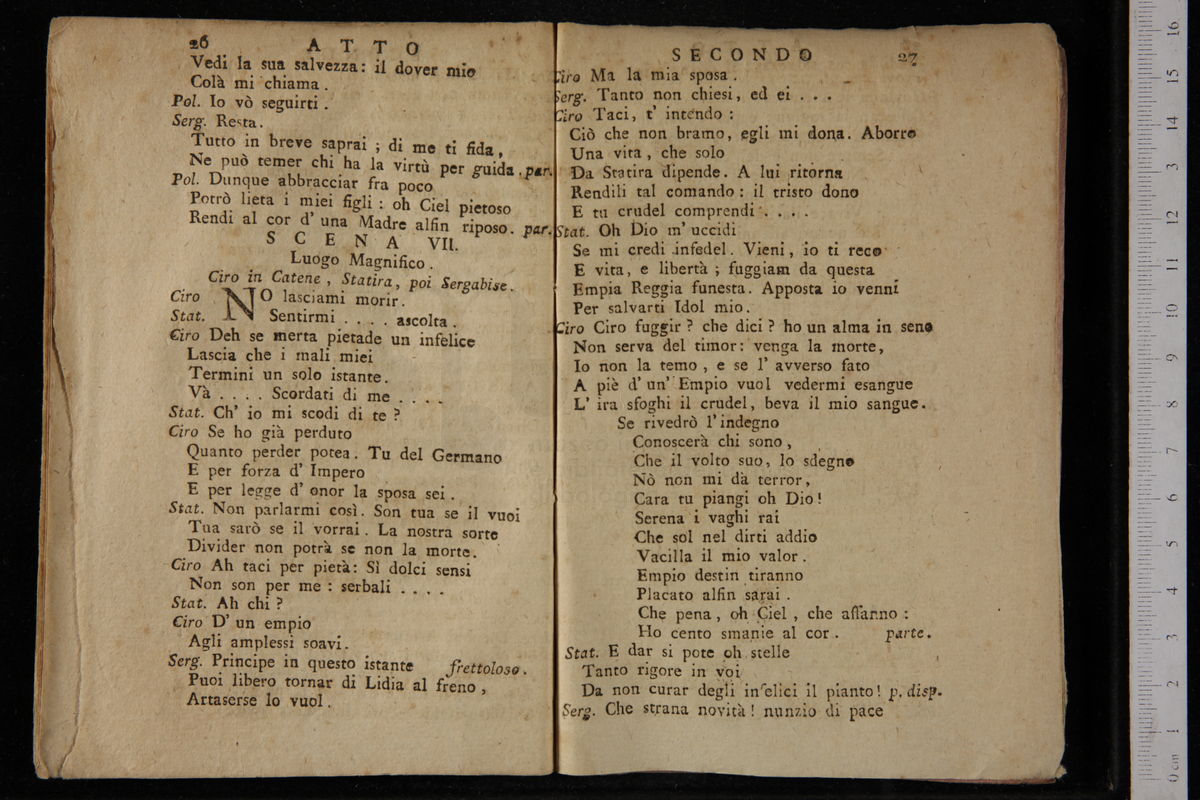 26 ATTO
Vedi la sua salvezza: il dover mio
Colà mi chiama.
Pol. Io vò seguirti.
Serg. Resta.
Tutto in breve saprai; di me ti fida,
Ne può temer chi ha la virtù per guida. par.
Pol. Dunque abbracciar fra poco
Potrò lieta i miei figli: oh Ciel pietoso
Rendi al cor d' una Madre alfin riposo. par.
SCENA VII.
Luogo Magnifico.
Ciro in Catene, Statira, poi Sergabise.
Ciro NO lasciami morir.
Stat. Sentirmi .... ascolta.
Ciro Deh se merta pietade un infelice
Lascia che i mali miei
Termini un solo istante.
Và .... Scordati di me ....
Stat. Ch' io mi scodi di te?
Ciro Se ho già perduto
Quanto perder potea. Tu del Germano
E per forza d' Impero
E per legge d' onor la sposa sei.
Stat. Non parlarmi così. Son tua se il vuoi
Tua sarò se il vorrai. La nostra sorte
Divider non potrà se non la morte.
Ciro Ah taci per pietà: Sì dolci sensi
Non son per me: serbali ....
Stat. Ah chi?
Ciro D' un empio
Agli amplessi soavi.
Serg. Principe in questo istante frettoloso.
Puoi libero tornar di Lidia al freno,
Artaserse lo vuol.
SECONDO 27
Ciro Ma la mia sposa.
Serg. Tanto non chiesi, ed ei ...
Ciro Taci, t' intendo:
Ciò che non bramo, egli mi dona. Aborro
Una vita, che solo
Da Statira dipende. A lui ritorna
Rendili tal comando: il tristo dono
E tu crudel comprendi ....
Stat. Oh Dio m' uccidi
Se mi credi infedel. Vieni, io ti reco
E vita, e libertà; fuggiam da questa
Empia Reggia funesta. Apposta io venni
Per salvarti Idol mio.
Ciro Ciro fuggir? che dici? ho un alma in seno
Non serva del timor: venga la morte,
Io non la temo, e se l' avverso fato
A piè d' un' Empio vuol vedermi esangue
L' ira sfoghi il crudel, beva il mio sangue.
Se rivedrò l' indegno
Conoscerà chi sono,
Che il volto suo, lo sdegno
Nò non mi dà terror,
Cara tu piangi oh Dio!
Serena i vaghi rai
Che sol nel dirti addio
Vacilla il mio valor.
Empio destin tiranno
Placato alfin sarai.
Che pena, oh Ciel, che affanno:
Ho cento smanie al cor. parte.
Stat. E dar si pote oh stelle
Tanto rigore in voi
Da non curar degli infelici il pianto! p. disp.
Serg. Che strana novità! nunzio di pace
16
15
14
13
12
11
10
9
8
7
6
5
4
3
2
1
0 cm